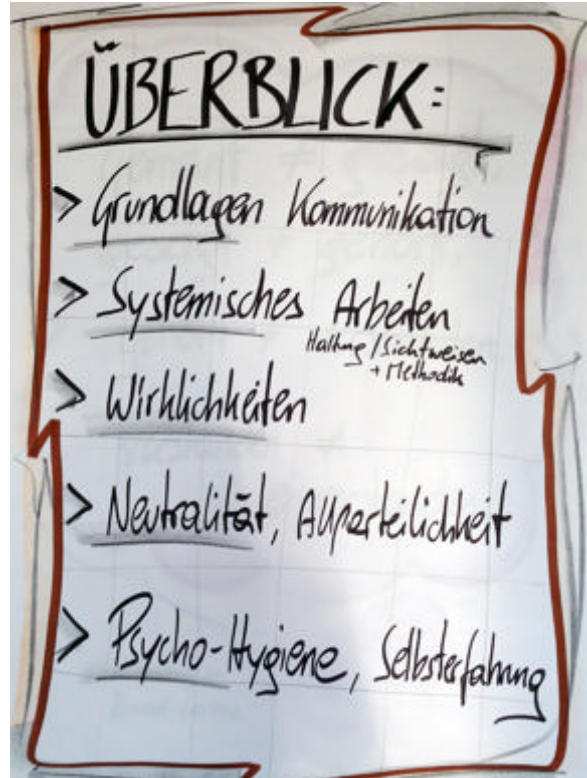 ÜBERBLICK:
> Grundlagen Kommunikation
> Systemisches Arbeiten
Haltung/Sichtweisen
+ Methodik
> Wirklichkeiten
> Neutralität, Allparteilichkeit
> Psycho-Hygiene, Selbsterfahrung